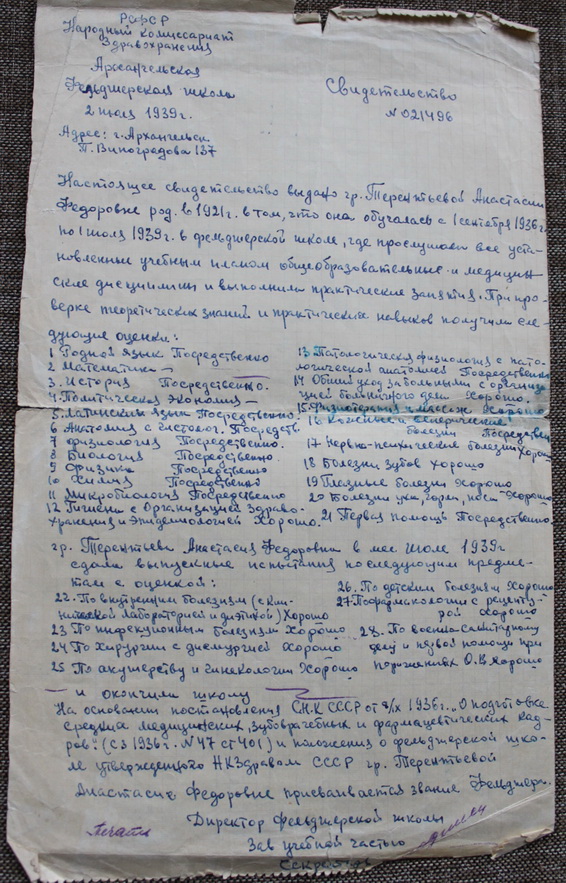 РСФСР
Народный комиссариат
Здравохранения
Архангельская
Фельдшерская школа
2 июля 1939 г.
Адрес: г. Архангельск
П. Виноградова 137
Свидетельство
N 021496
Настоящее свидетельство выдано гр. Терентьевой Анастасии
Федоровне род. в 1921 г. в том, что она обучалась с 1 сентября 1936 г.
по 1 июля 1939 г. в фельдшерской школе, где прослушала все уста-
новленные учебным планом общеобразовательные и медицин-
ские дисциплины и выполнила практические занятия. При про-
верке теоретических знаний и практических навыков получила сле-
дующие оценки:
1 Родной язык Посредственно
2 Математика —
3. История Посредственно.
4. Политическая Экономия —
5. Латинский язык Посредственно.
6 Анатомия с гистолог. Посредств
7 Физиология Посредственно.
8 Биология Посредственно.
9 Физика Посредственно
10 Химия Посредственно
11 Микробиология Посредственно
12 Гигиена с Организацией Здраво-
хранения и Эпидемиологией Хорошо.
13 Патологическая физиология с пато-
логической анатомией Посредственно
14 Общий уход за больными с организа-
цией больничного дела Хорошо.
15 Физиотерапия и массаж Хорошо
16 Кожные и венерические
болезни Посредствен
17 Нервно-психические болезни Хорошо
18 Болезни зубов хорошо
19 Глазные болезни Хорошо
20 Болезни уха, горла, носа Хорошо
21 Первая помощь Посредственно
гр. Терентьева Анастасия Федоровна в мае июле 1939 г
сдала выпускные испытания по следующим предме-
там с оценкой:
22. По внутренним болезням (с кли-
нической лабораторией и диэтикой) Хорошо
23 По инфекционным болезням Хорошо
24 По Хирургии с десмургией Хорошо
25 По акушерству и гинекологии Хорошо
26. По детским болезням Хорошо
27. По фармакологии с рецепту-
рой Хорошо
28. По военно-санитарному
делу и первой помощи при
поражениях О.В. Хорошо
— и окончила школу
На основании постановления С.Н.К СССР от 8/IX 1936 г. „О подготовке
средних медицинских, зубоврачебных и фармацевтических кад-
ров" (СЗ 1936 г. N 47 ст 401) и положения о фельдшерской шко-
ле утвержденного НКЗдравом СССР гр. Терентьевой
Анастасие Федоровне присваивается звание Фельдшера.
Директор фельдшерской школы
Зав учебной частью
Секретарь
печати